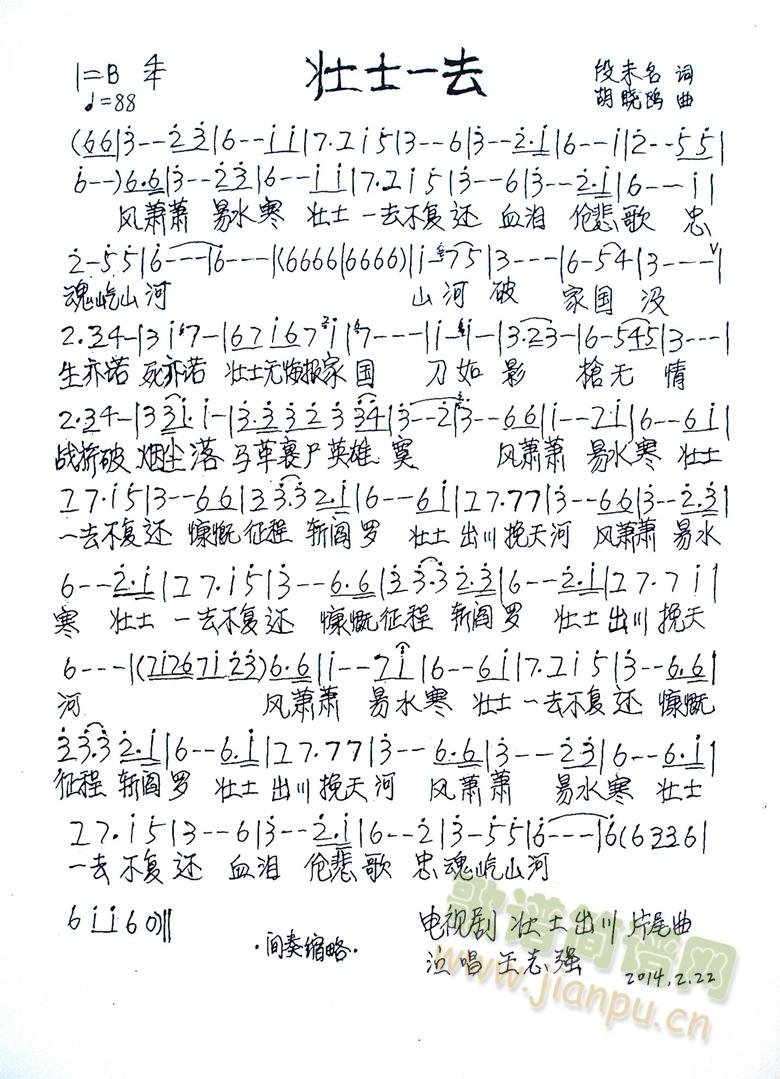 壮士一去
1=B 4/4
♩=88
段未名 词
胡晓鸥 曲
(66|3--23|6--11|7.215|3--6|3--2.1|6--1|2--55|
6--)6.6|3--23|6--11|7.215|3--6|3--2.1|6--1|
风萧萧 易水寒 壮士 一去不复还 血泪 伧悲歌 忠
2-55|6---|6---|(6666|6666)|1-75|3---|6-54|3---|
魂屹山河 山河 破 家国 没
2.34-|317-|671671|7---|1-1-|3.23-|6-545|3---|
生亦诺 死亦诺 壮士无悔报家国 刀如影 枪无情
2.34-|331.1-|3.332334|3--2|3--66|1--71|6--61|
战旂破 烟尘落 马革裹尸英雄冥 风萧萧 易水寒 壮士
27.15|3--66|33.32.1|6--61|27.77|3--66|3--2.3|
一去不复还 慷慨征程 斩阎罗 壮士出川挽天河 风萧萧 易水
6--2.1|27.15|3--6.6|33.32.3|6--2.1|27.71|
寒 壮士 一去不复还 慷慨征程 斩阎罗 壮士出川 挽天
6---|(71267123)6.6|1--71|6--61|7.215|3--6.6|
河 风萧萧 易水寒 壮士 一去不复还 慷慨
33.32.1|6--6.1|27.77|3--6.6|3--23|6--6.1|
征程 斩阎罗 壮士出川挽天河 风萧萧 易水寒 壮士
27.15|3--6|3--2.1|6--2|3-55|6---|6(6336|
一去不复还 血泪 伧悲歌 忠魂屹山河
61160)‖
·间奏缩略·
电视剧 壮士出川 片尾曲
演唱 王志强
2014.2.22
歌谱简谱网
www.jianpu.cn